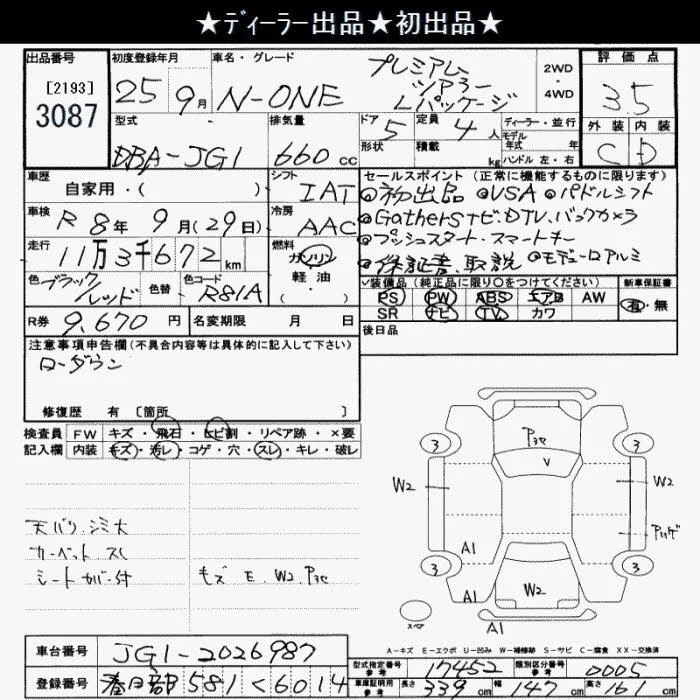 ★ディーラー出品★初出品★
出品番号
[2193]
3087
初度登録年月
25 9月
車名・グレード
N-ONE
プレミアム
ツアラー
Lパッケージ
2WD
・
4WD
評価点
3.5
外装 内装
C D
型式
DBA-JG1
排気量
660cc
ドア 5
形状
定員 4人
積載 kg
ディーラー・並行
モデル
年式 年
ハンドル 左・右
車歴
自家用・( )
シフト
IAT
車検
R 8年 9月(29日)
冷房
AAC
走行
11万3千672km
燃料
ガソリン
軽・油
色 ブラック/レッド
色替
色コード
R81A
セールスポイント(正常に機能するものに限ります)
◎初出品 ◎VSA ◎パドルシフト
◎Gathersナビ.DTV.バックカメラ
◎プッシュスタート・スマートキー
◎保証書、取説 ◎モデューロアルミ
✓装備品(純正品に限り○をつけてください)
新車保証書
PS PW ABS エアB AW
SR ナビ TV カワ
有・無
R券 9,670円
名変期限 月 日
後日品
注意事項申告欄(不具合内容等は具体的に記入して下さい)
ローダウン
修復歴 有 〔箇所 〕
検査員
記入欄
FW キズ・飛石・ヒビ割・リペア跡・×要
内装 キズ・汚レ・コゲ・穴・スレ・キレ・破レ
天バリ、シミ大
カーペット スレ
シートカバー付
キズ E. W2. P3セ
P3セ
V
3 3
W2 W2
A1
3 3
A1
W2
A1
スペア
A-キズ E-エクボ U-凹み W-補修跡 S-サビ C-腐食 XX-交換済
車台番号
JG1-2026987
登録番号
春日部581く6014
型式指定番号
参考
17452
類別区分番号
参考
0005
車庫証明用
参考
長さ 339cm 幅 147cm 高さ 161cm